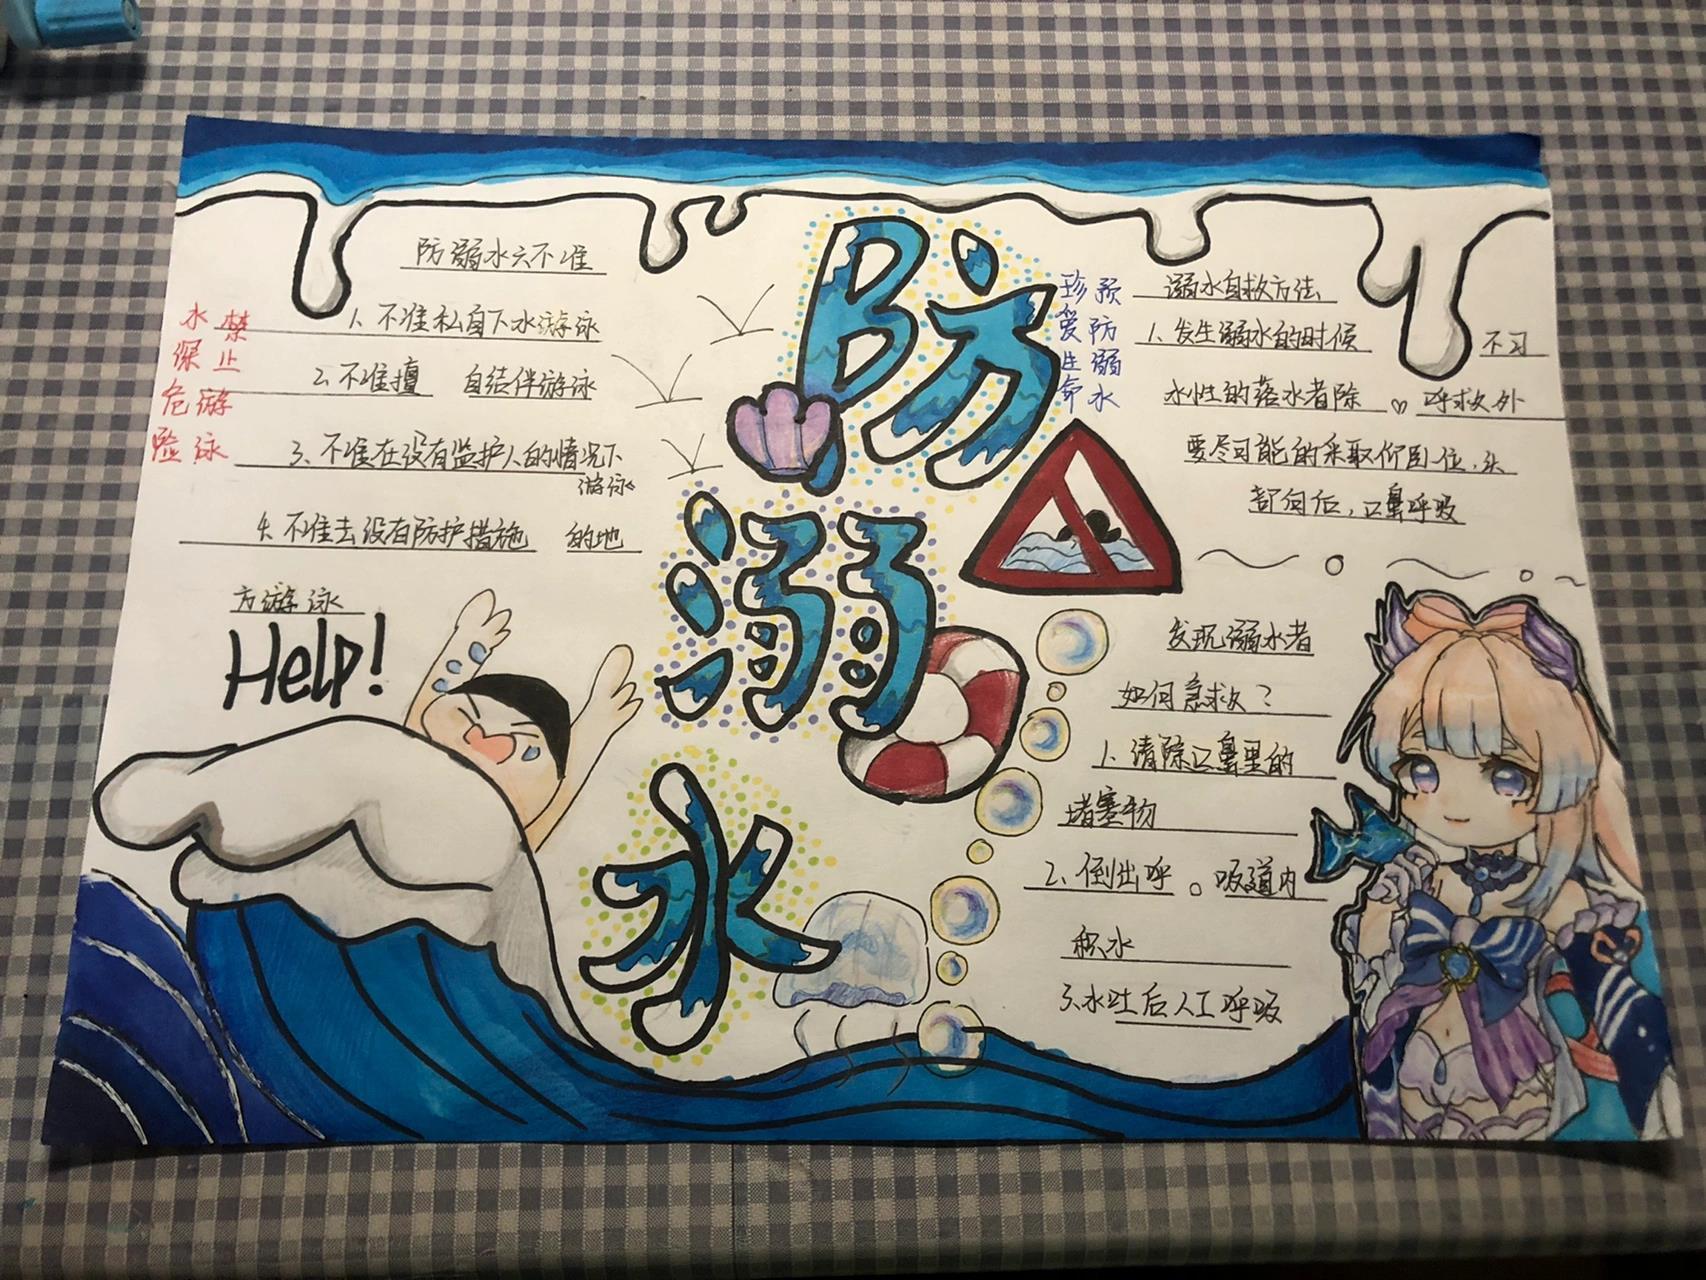 防溺水六不准
水深危险
禁止游泳
1、不准私自下水游泳
2、不准擅 自结伴游泳
3、不准在没有监护人的情况下
游泳
4、不准去没有防护措施 的地
方游泳
Help!
防
溺
水
珍爱生命
预防溺水
溺水自救方法
1、发生溺水的时候 不习
水性的落水者除 呼救外
要尽可能的采取仰卧位,头
部向后,口鼻呼吸
发现溺水者
如何急救?
1、清除口鼻里的
堵塞物
2、倒出呼 吸道内
积水
3、水吐后人工呼吸